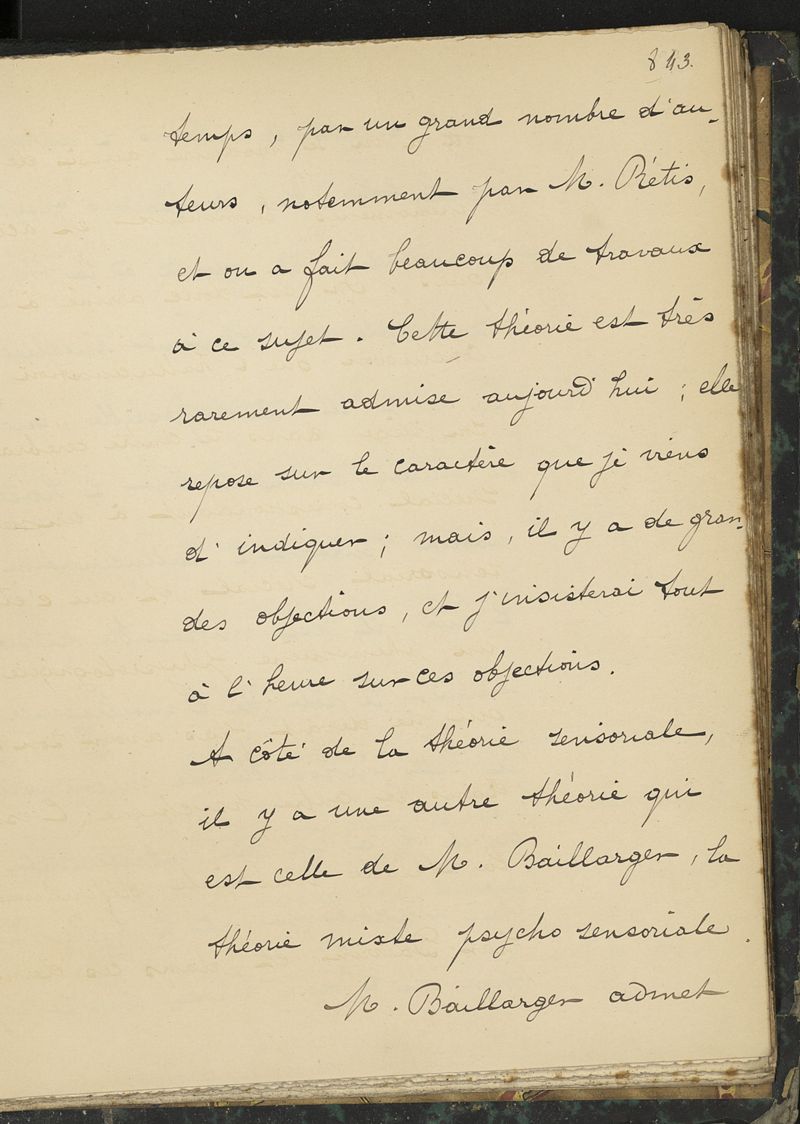 843.
temps, par un grand nombre d'au-
teurs, notemment par M. Rétis,
et on a fait beaucoup de travaux
à ce sujet. Cette théorie est très
rarement admise aujourd'hui ; elle
repose sur le caractère que je viens
d'indiquer ; mais, il y a de gran-
des objections, et j'insisterai tout
à l'heure sur ces objections.
A côté de la théorie sensoriale,
il y a une autre théorie qui
est celle de M. Baillarger, la
théorie mixte psycho sensoriale.
M. Baillarger admet